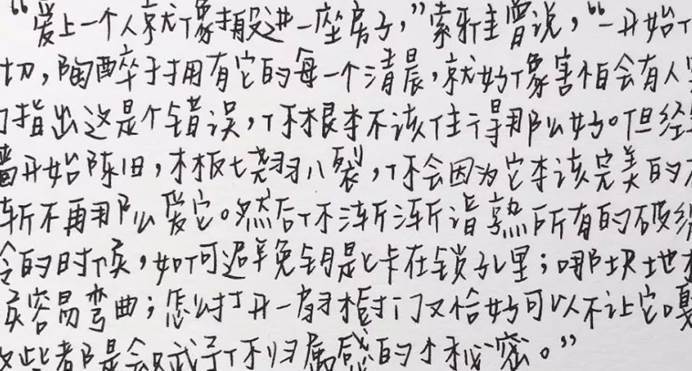 “爱上一个人就像搬进一座房子，”索雅圭曾说，“一开始
切，陶醉于拥有它的每一个清晨，就好像害怕会有人
指出这是个错误，你根本不该住得那么好。但经
开始陈旧，木板七翘八裂，你会因为它本该完美的
渐不再那么爱它。然后你渐渐谙熟所有的破绽
的时候，如何避免钥匙卡在锁孔里；哪块地
容易弯曲；怎么打开一扇橱门又恰好可以不让它嘎
些都是会赋予你归属感的小秘密。”